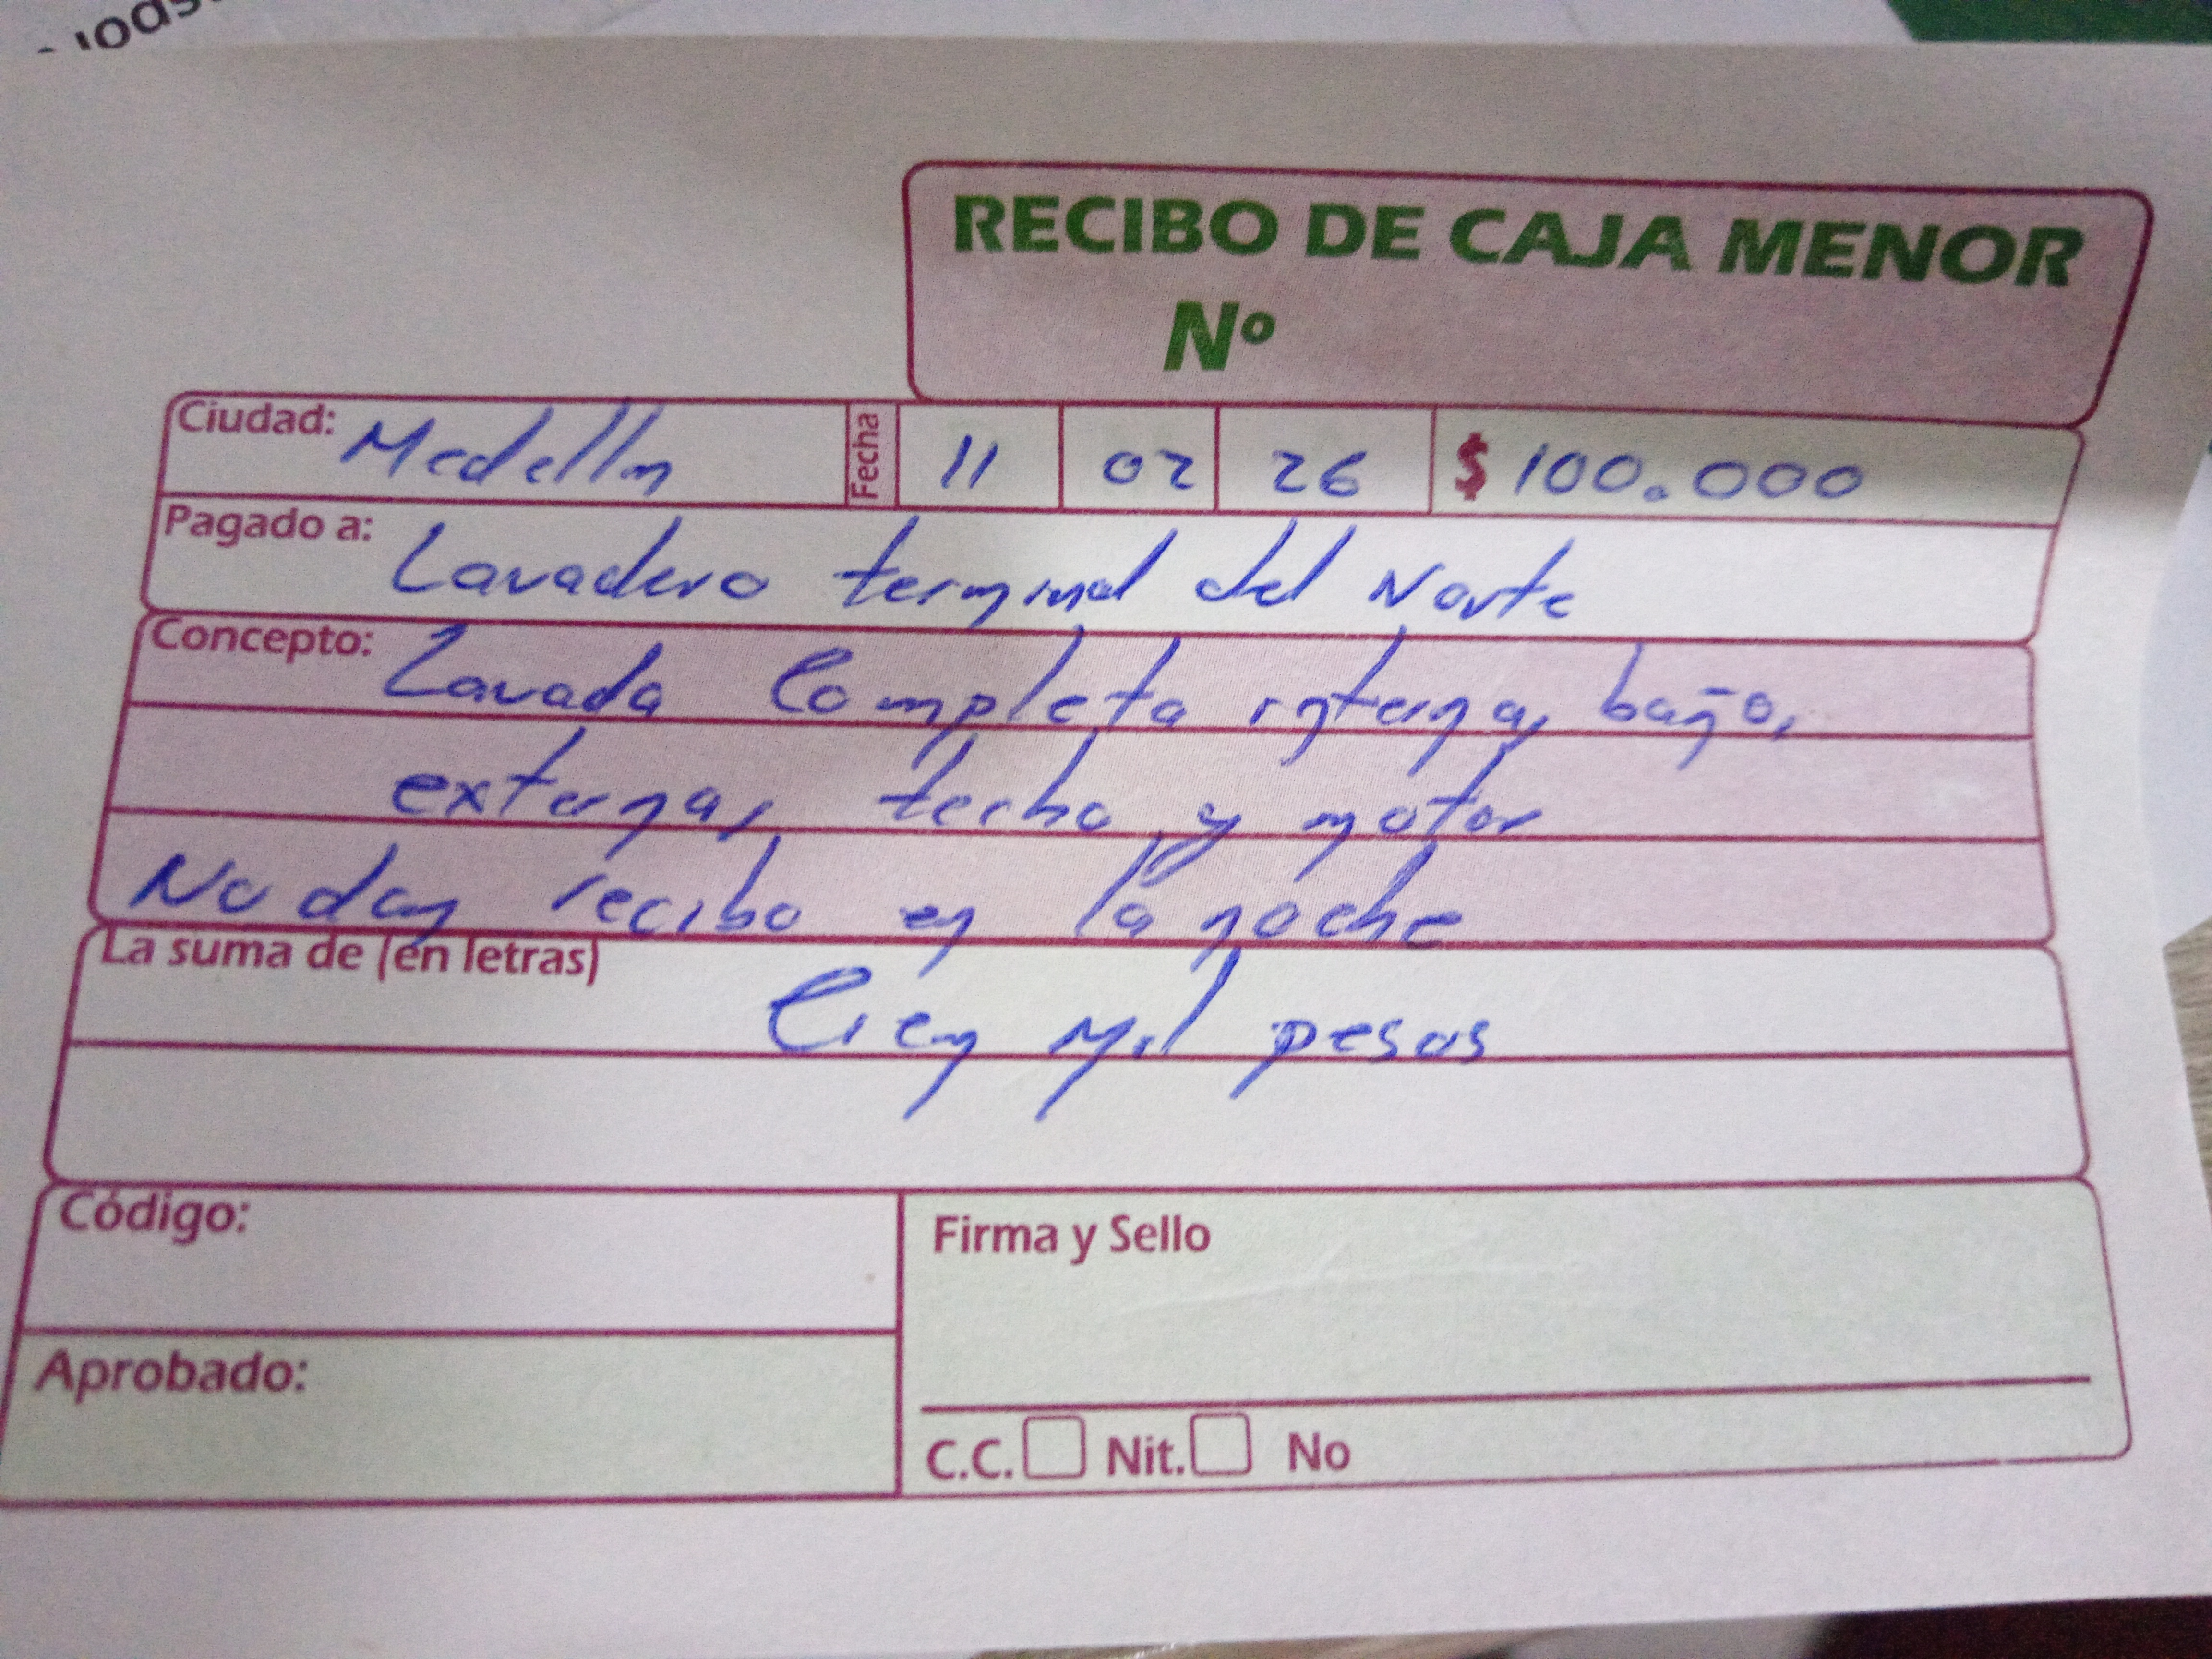 RECIBO DE CAJA MENOR
Nº
Ciudad: Medellin Fecha 11 02 26 $ 100.000
Pagado a: Lavadero terminal del Norte
Concepto: Lavada Completa interna, baño,
externa, techo y motor
No dan recibo en la noche
La suma de (en letras)
Cien Mil pesos
Código:
Firma y Sello
Aprobado:
C.C. Nit. No